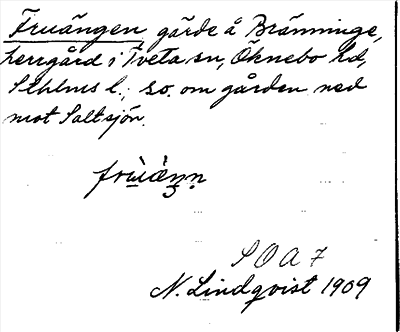 Fruängen gärde å Bränninge,
herrgård i Tveta sn, Öknebo hd,
Sthlms l.; s.o. om gården ned
mot Saltsjön.
SOA 7
N. Lindqvist 1909